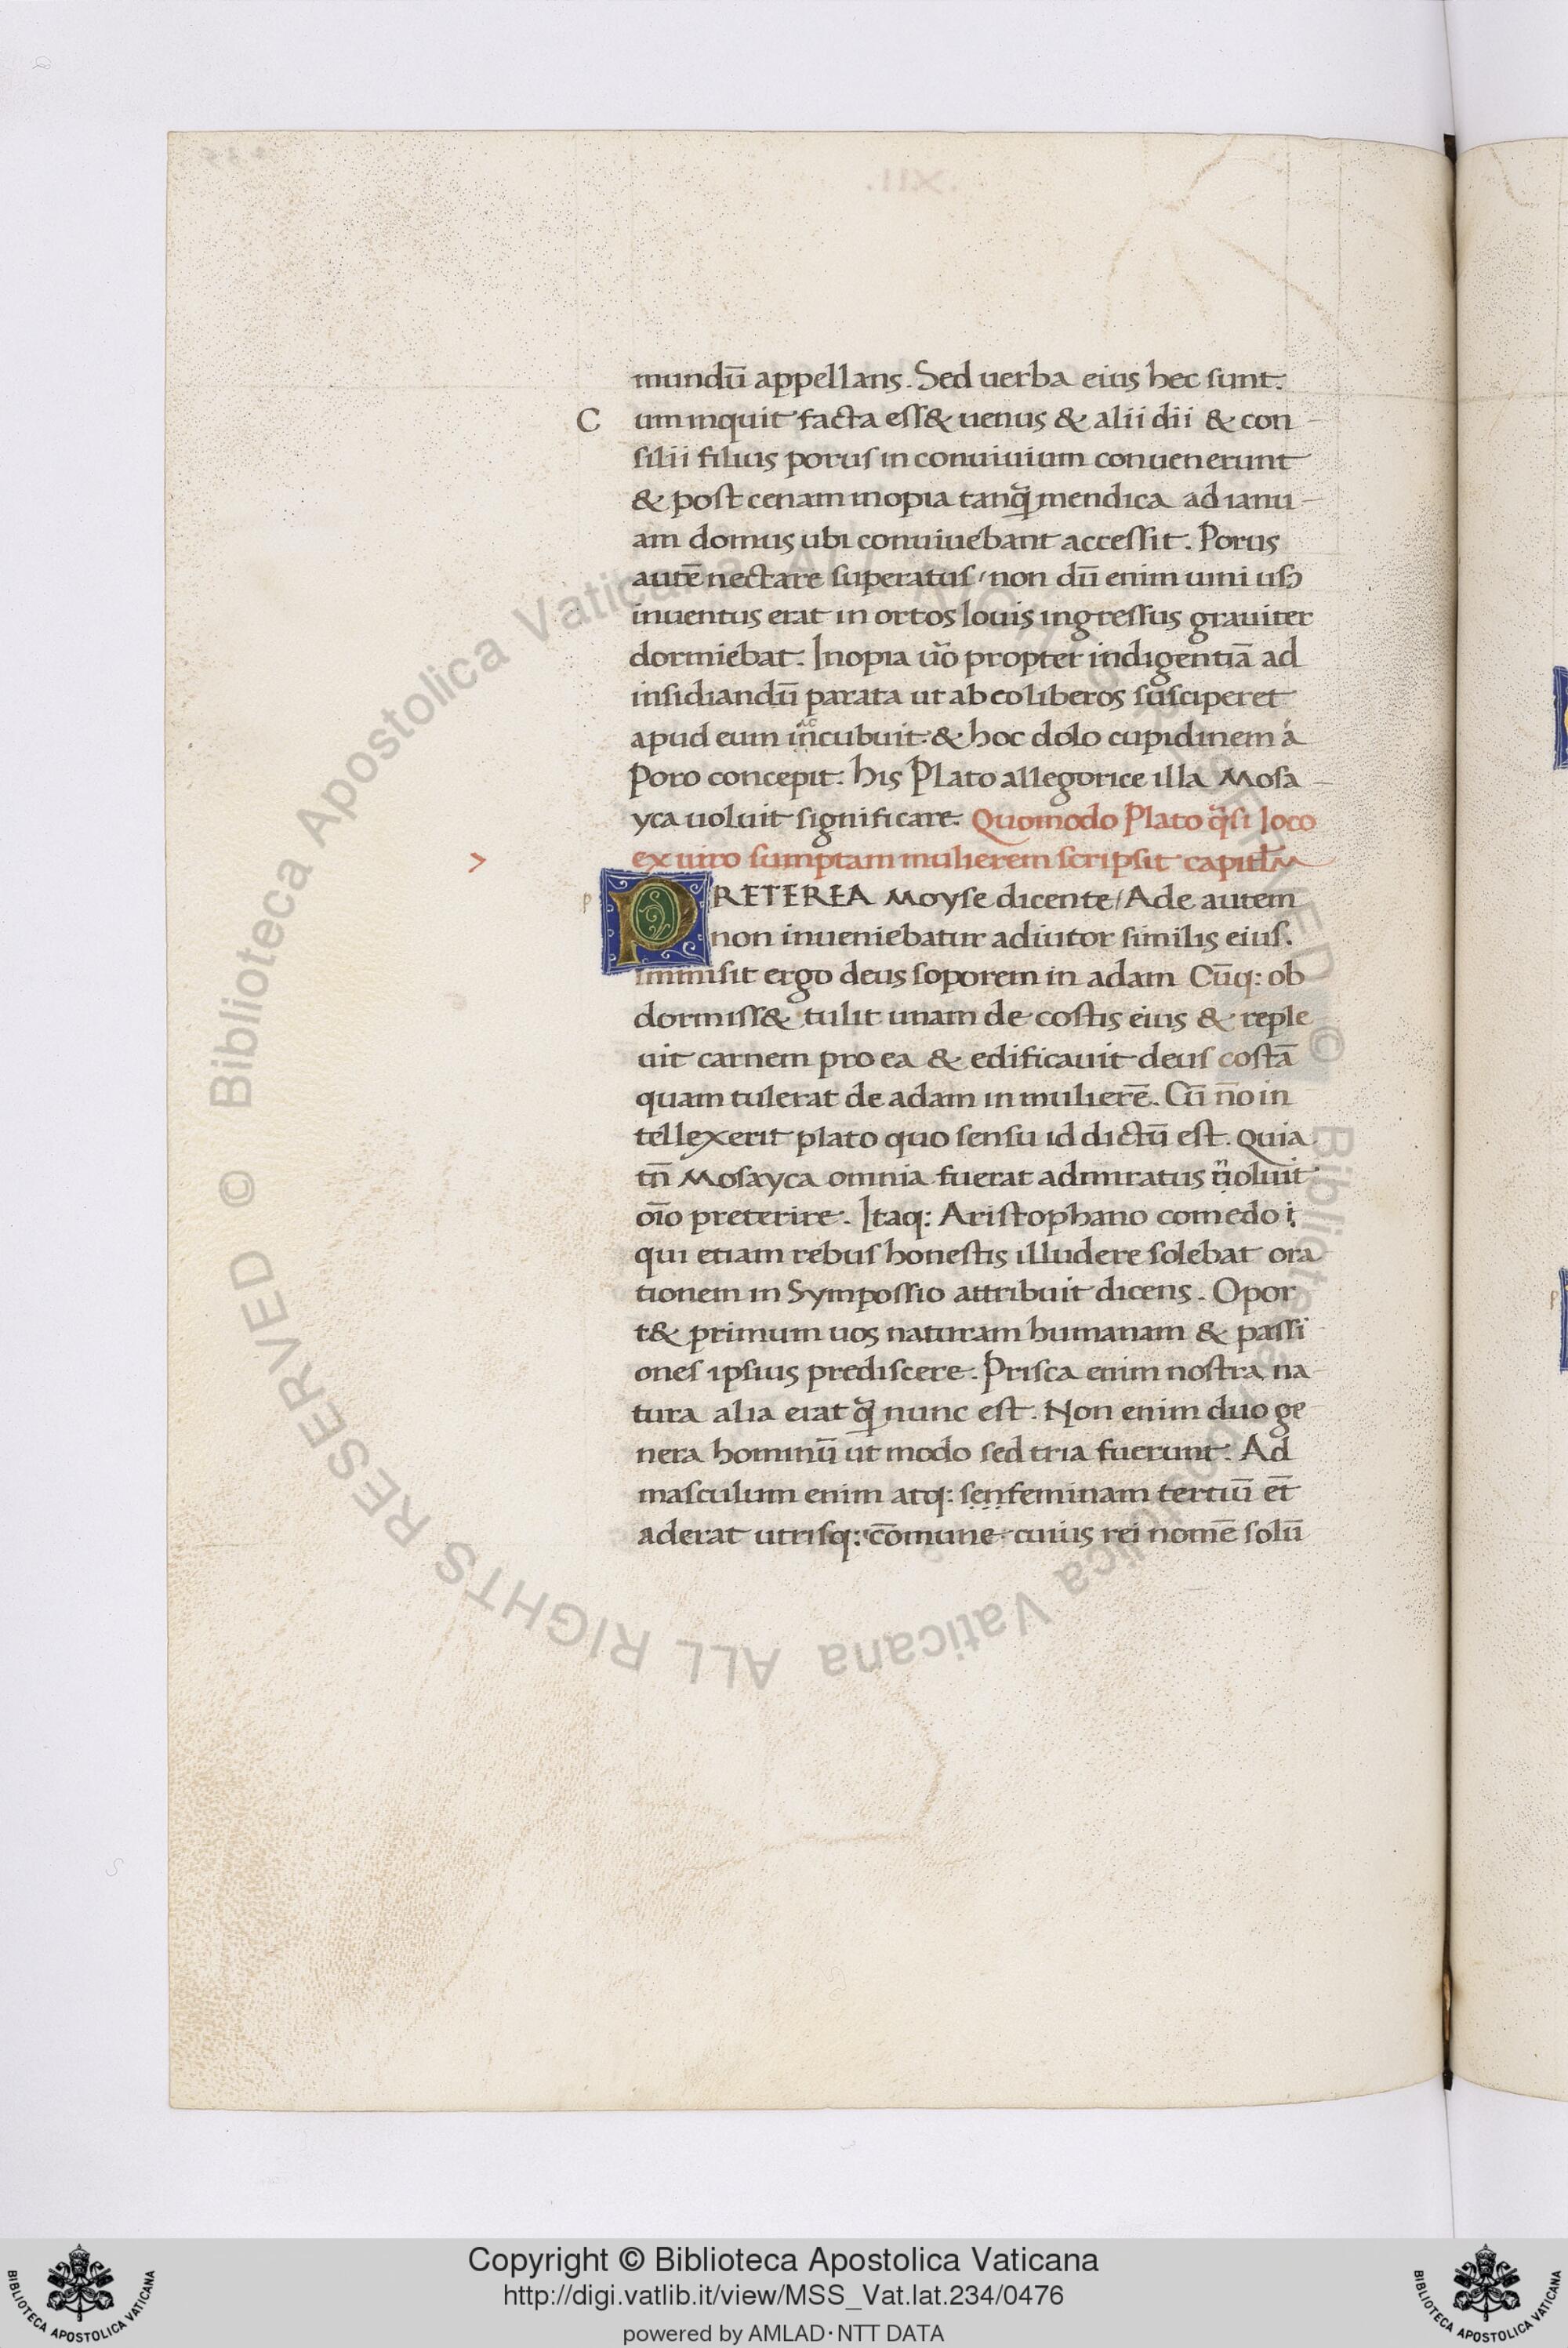 mundū appellans. Sed uerba eius hec sunt.
C um inquit facta ess& uenus & alii dii & con
silii filius porus in conuiuium conuenerunt
& post cenam inopia tanq̄ mendica ad ianu
am domus ubi conuiuebant accessit. Porus
autē nectare superatus / non dū enim uini usꝰ
inuentus erat in ortos Iouis ingressus grauiter
dormiebat. Inopia ūo propter indigentiā ad
insidiandū parata ut ab eo liberos susciperet
apud eum incubuit. & hoc dolo cupidinem á
Poro concepit. his Plato allegorice illa Mosa
yca uoluit significare. Quomodo Plato q̄si Ioco
ex uiro sumptam mulierem scripsit capitl̄m
PRETEREA Moyse dicente / Ade autem
p
non inueniebatur adiutor similis eius.
immisit ergo deus soporem in adam Cūq: ob
dormiss& tulit unam de costis eius & reple
uit carnem pro ea & edificauit deus costā
quam tulerat de adam in mulierē. Cū nō in
tellexerit plato quo sensu id dictū est. Quia
tn̄ Mosayca omnia fuerat admiratus noluit
oīo preterire. Itaq: Aristophano comedo i
qui etiam rebus honestis illudere solebat ora
tionem in Sympossio attribuit dicens. Opor
t& primum uos naturam humanam & passi
ones ipsius prediscere. Prisca enim nostra na
tura alia erat q̄ nunc est. Non enim duo ge
nera hominū ut modo sed tria fuerunt. Ad
masculum enim atq: sen feminam tertiū et̄
aderat utrisq: cōmune cuius rei nomē solū
.XII.
© Biblioteca Apostolica Vaticana ALL RIGHTS RESERVED © Biblioteca Apostolica Vaticana ALL RIGHTS RESERVED
BIBLIOTECA APOSTOLICA VATICANA
Copyright © Biblioteca Apostolica Vaticana
http://digi.vatlib.it/view/MSS_Vat.lat.234/0476
powered by AMLAD·NTT DATA
BIBLIOTECA APOSTOLICA VATICANA